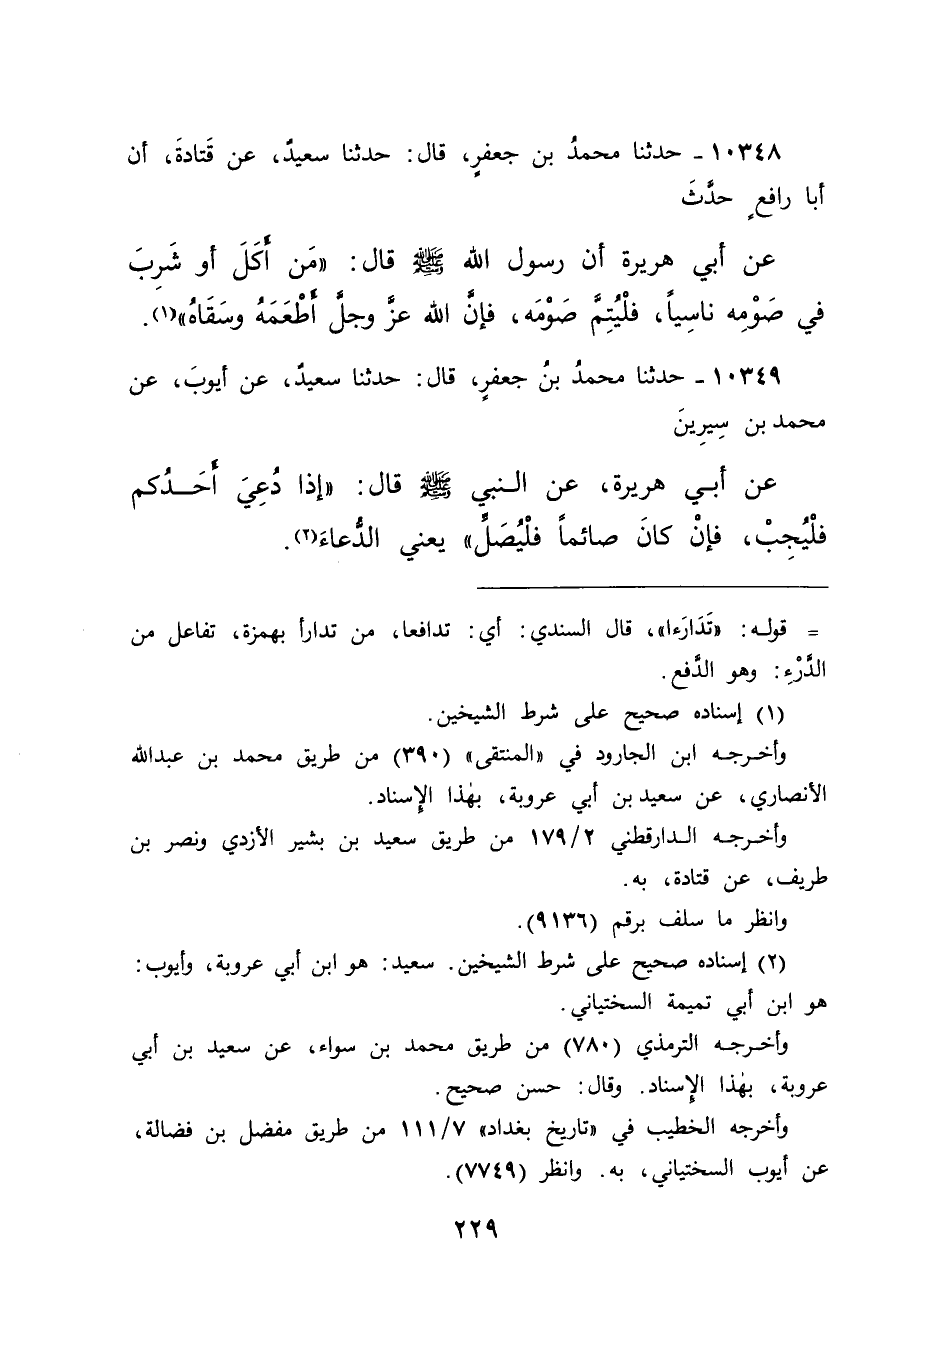 ١٠٣٤٨ ـ حدثنا محمدُ بن جعفرٍ، قال: حدثنا سعيدٌ، عن قَتادةَ، أن
أبا رافعٍ حدَّثَ
عن أبي هريرة أن رسول الله ﷺ قال: «مَن أَكَلَ أو شَرِبَ
في صَوْمِه ناسِياً، فلْيُتِمَّ صَوْمَه، فإنَّ الله عزَّ وجلَّ أَطْعَمَهُ وسَقَاهُ»(١).
١٠٣٤٩ ـ حدثنا محمدُ بنُ جعفرٍ، قال: حدثنا سعيدٌ، عن أيوبَ، عن
محمد بن سِيرِينَ
عن أبي هريرة، عن النبي ﷺ قال: «إذا دُعِيَ أَحَدُكم
فلْيُجِبْ، فإنْ كانَ صائماً فلْيُصَلِّ» يعني الدُّعاءَ(٢).
= قوله: «تَدَارَءا»، قال السندي: أي: تدافعا، من تدارأ بهمزة، تفاعل من
الدَّرْءِ: وهو الدَّفع.
(١) إسناده صحيح على شرط الشيخين.
وأخرجه ابن الجارود في «المنتقى» (٣٩٠) من طريق محمد بن عبدالله
الأنصاري، عن سعيد بن أبي عروبة، بهٰذا الإسناد.
وأخرجه الدارقطني ١٧٩/٢ من طريق سعيد بن بشير الأزدي ونصر بن
طريف، عن قتادة، به.
وانظر ما سلف برقم (٩١٣٦).
(٢) إسناده صحيح على شرط الشيخين. سعيد: هو ابن أبي عروبة، وأيوب:
هو ابن أبي تميمة السختياني.
وأخرجه الترمذي (٧٨٠) من طريق محمد بن سواء، عن سعيد بن أبي
عروبة، بهٰذا الإسناد. وقال: حسن صحيح.
وأخرجه الخطيب في «تاريخ بغداد» ١١١/٧ من طريق مفضل بن فضالة،
عن أيوب السختياني، به. وانظر (٧٧٤٩).
٢٢٩